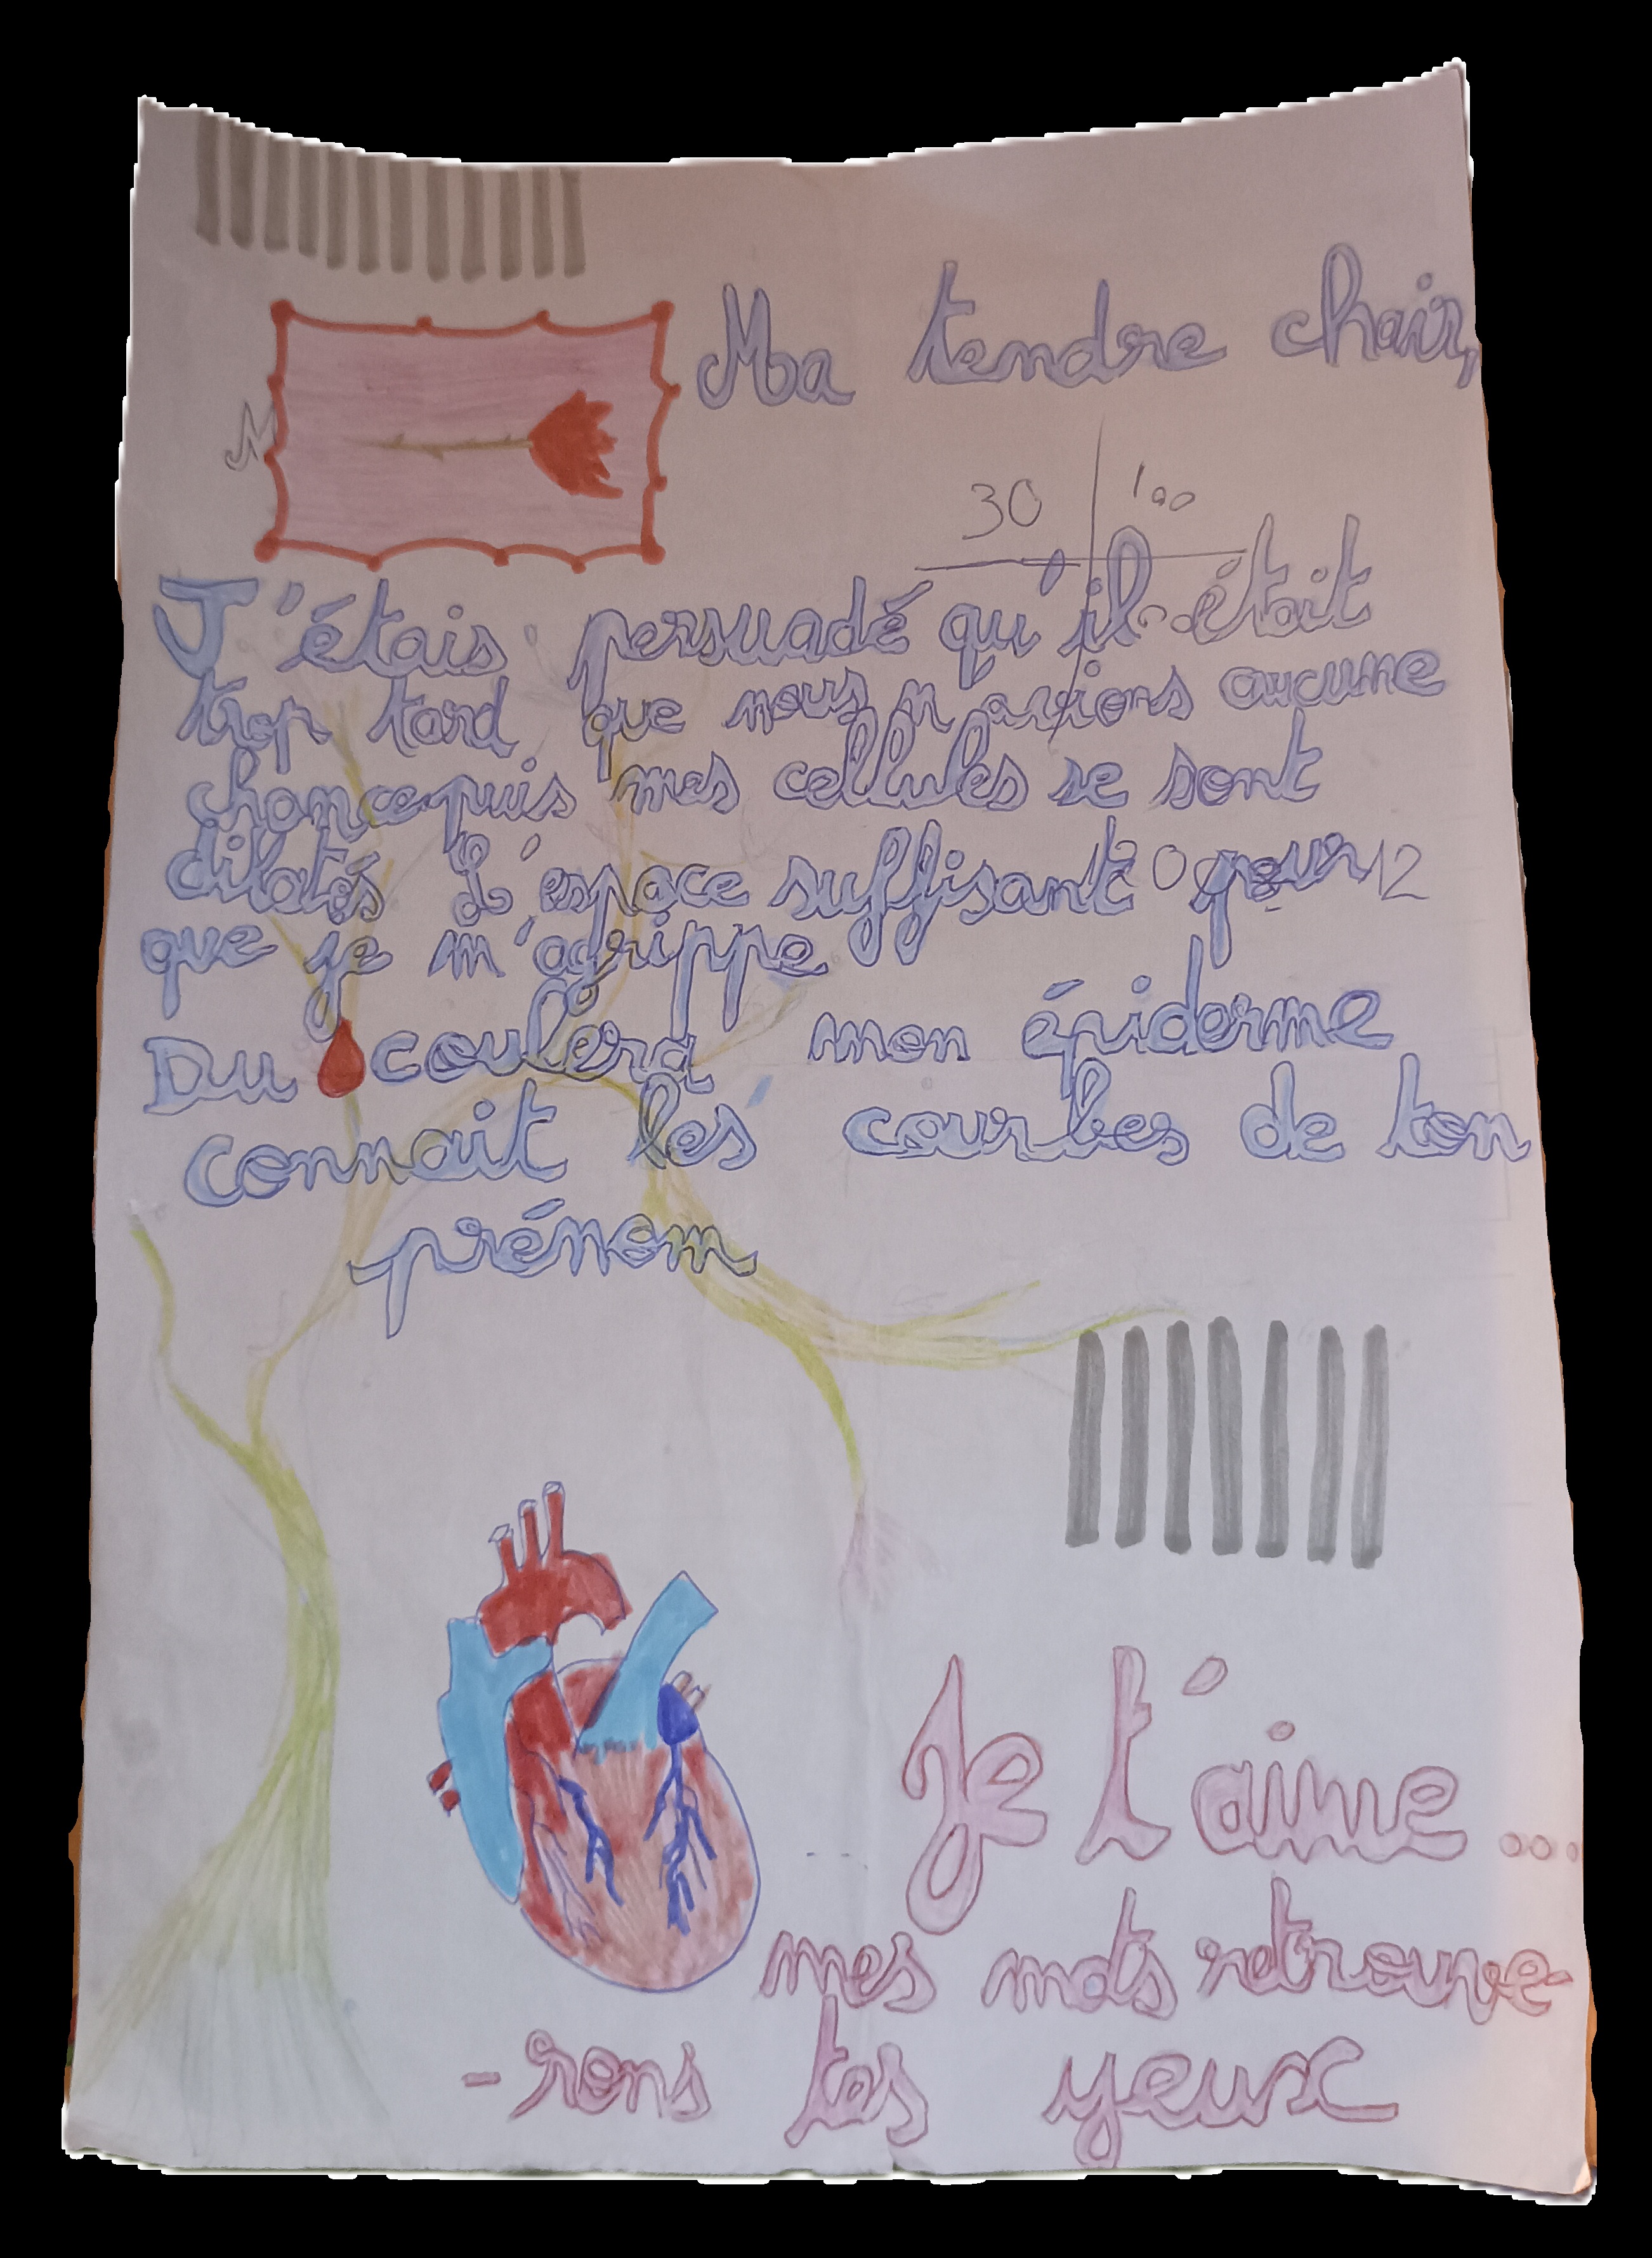 Ma tendre chair,
30 100
J'étais persuadé qu'il était
trop tard que nous n'avions aucune
chance puis mes cellules se sont
dilatés L'espace suffisant pour 12
que je m'agrippe
Du coulera mon épiderme
connait les courbes de ton
prénom
Je t'aime...
mes mots retrouve-
-rons tes yeux